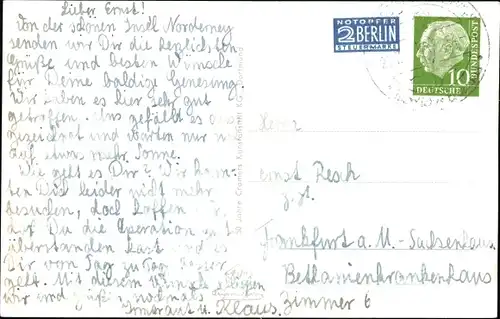 Lieber Ernst!
Von der schönen Insel Norderney
senden wir Dir die herzlichsten
Grüße und besten Wünsche
für Deine baldige Genesung.
Wir haben es hier sehr gut
getroffen. Uns gefällt es
und warten nur
auf etwas mehr Sonne.
Wie geht es Dir? Wir
Dich leider nicht mehr
besuchen, doch hoffen wir,
Du die Operation gut
überstanden hast und es
Dir von Tag zu Tag besser
geht. Mit diesem Wunsch
wir und nochmals
Irmtraut u. Klaus.
NOTOPFER
2 BERLIN
STEUERMARKE
10
DEUTSCHE
BUNDESPOST
Herrn
Ernst
z.Zt.
Frankfurt a. M.-Sachsenhausen
Bethanienkrankenhaus
Zimmer 6